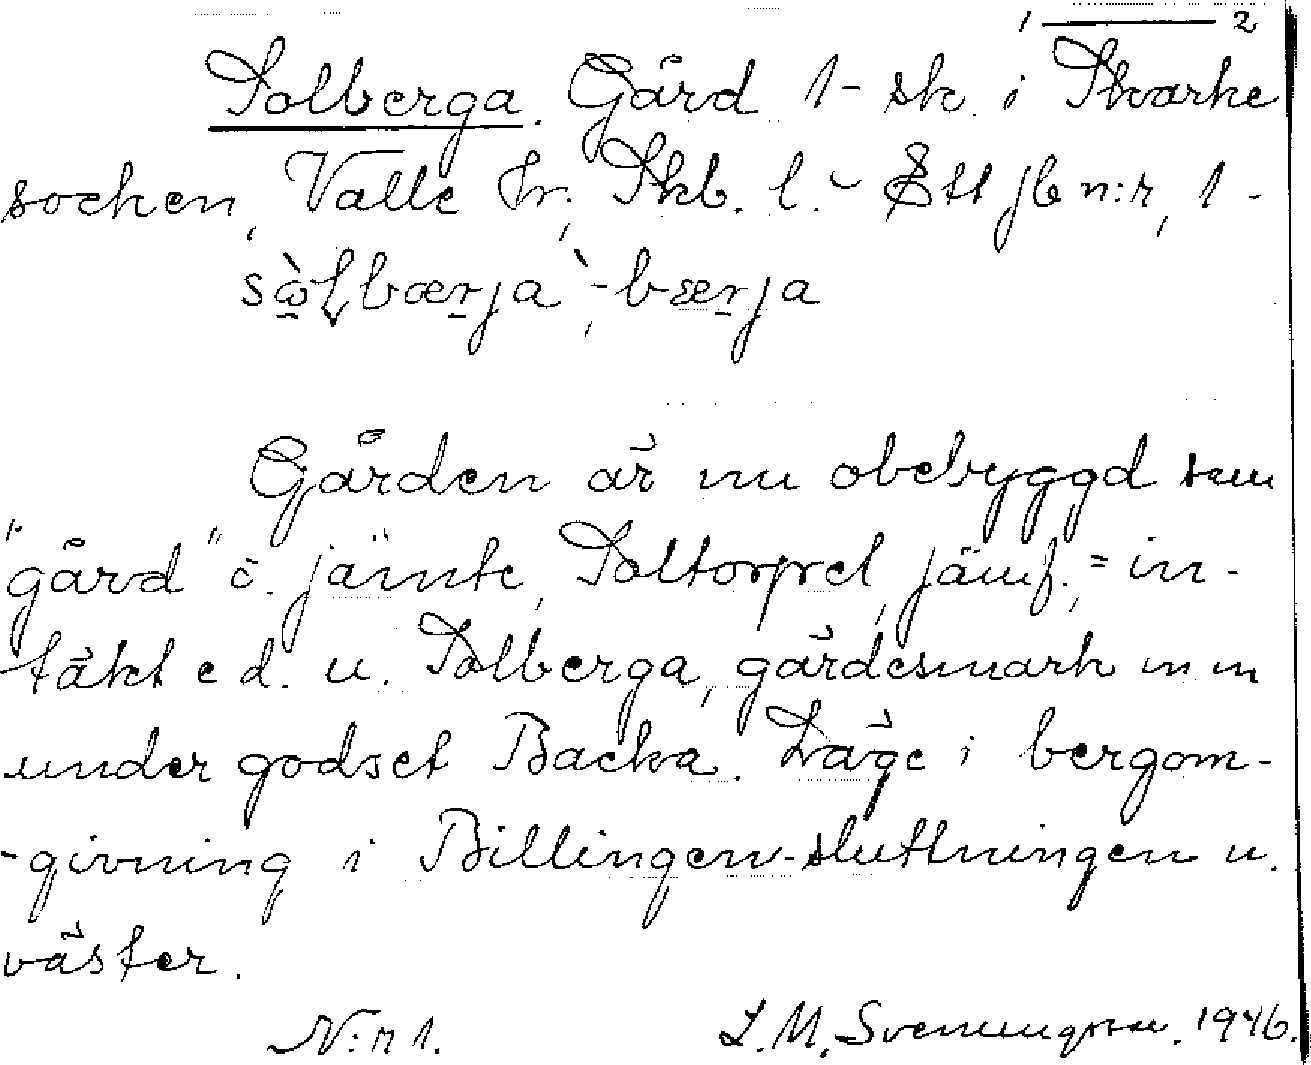 1 — 2
Solberga. Gård 1-sk. i Skarke
socken, Valle hr; Skb. l. - Ett jb n:r, 1-
sɷ̀ɽbærja`, -bærja
Gården är nu obebyggd som
"gård" o. jämte Soltorpet, jämf. = in-
täkt e d. u. Solberga, gärdesmark m m
under godset Backa. Läge i bergom-
-givning i Billingen-sluttningen u.
väster.
N:r 1. L. M. Svenungsson. 1946.